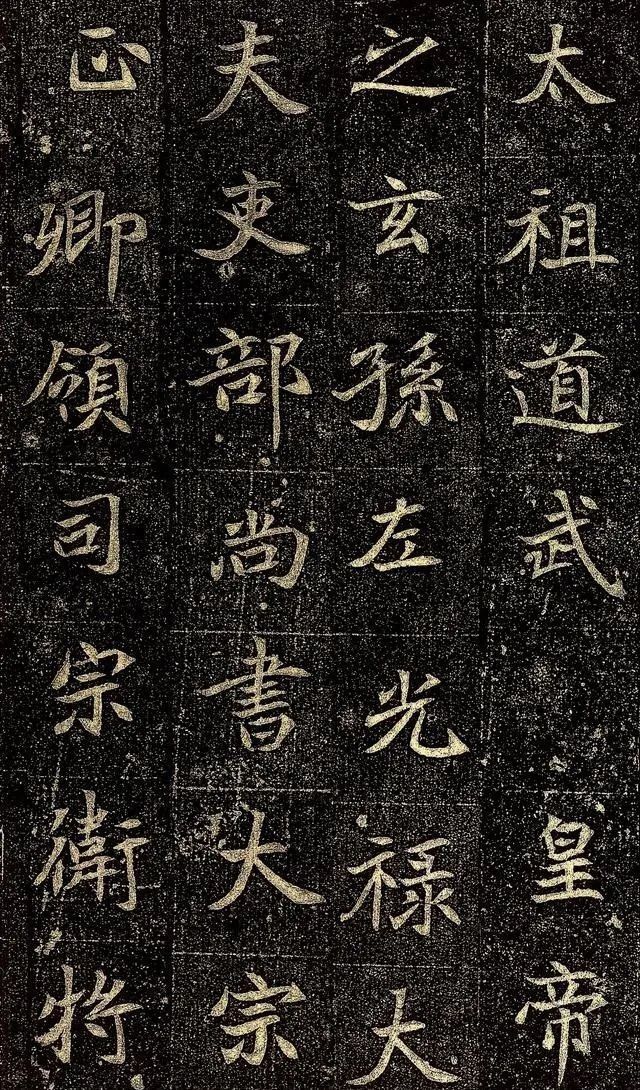 太祖道武皇帝
之玄孫左光禄大
夫吏部尚書大宗
正卿領司宗衛將